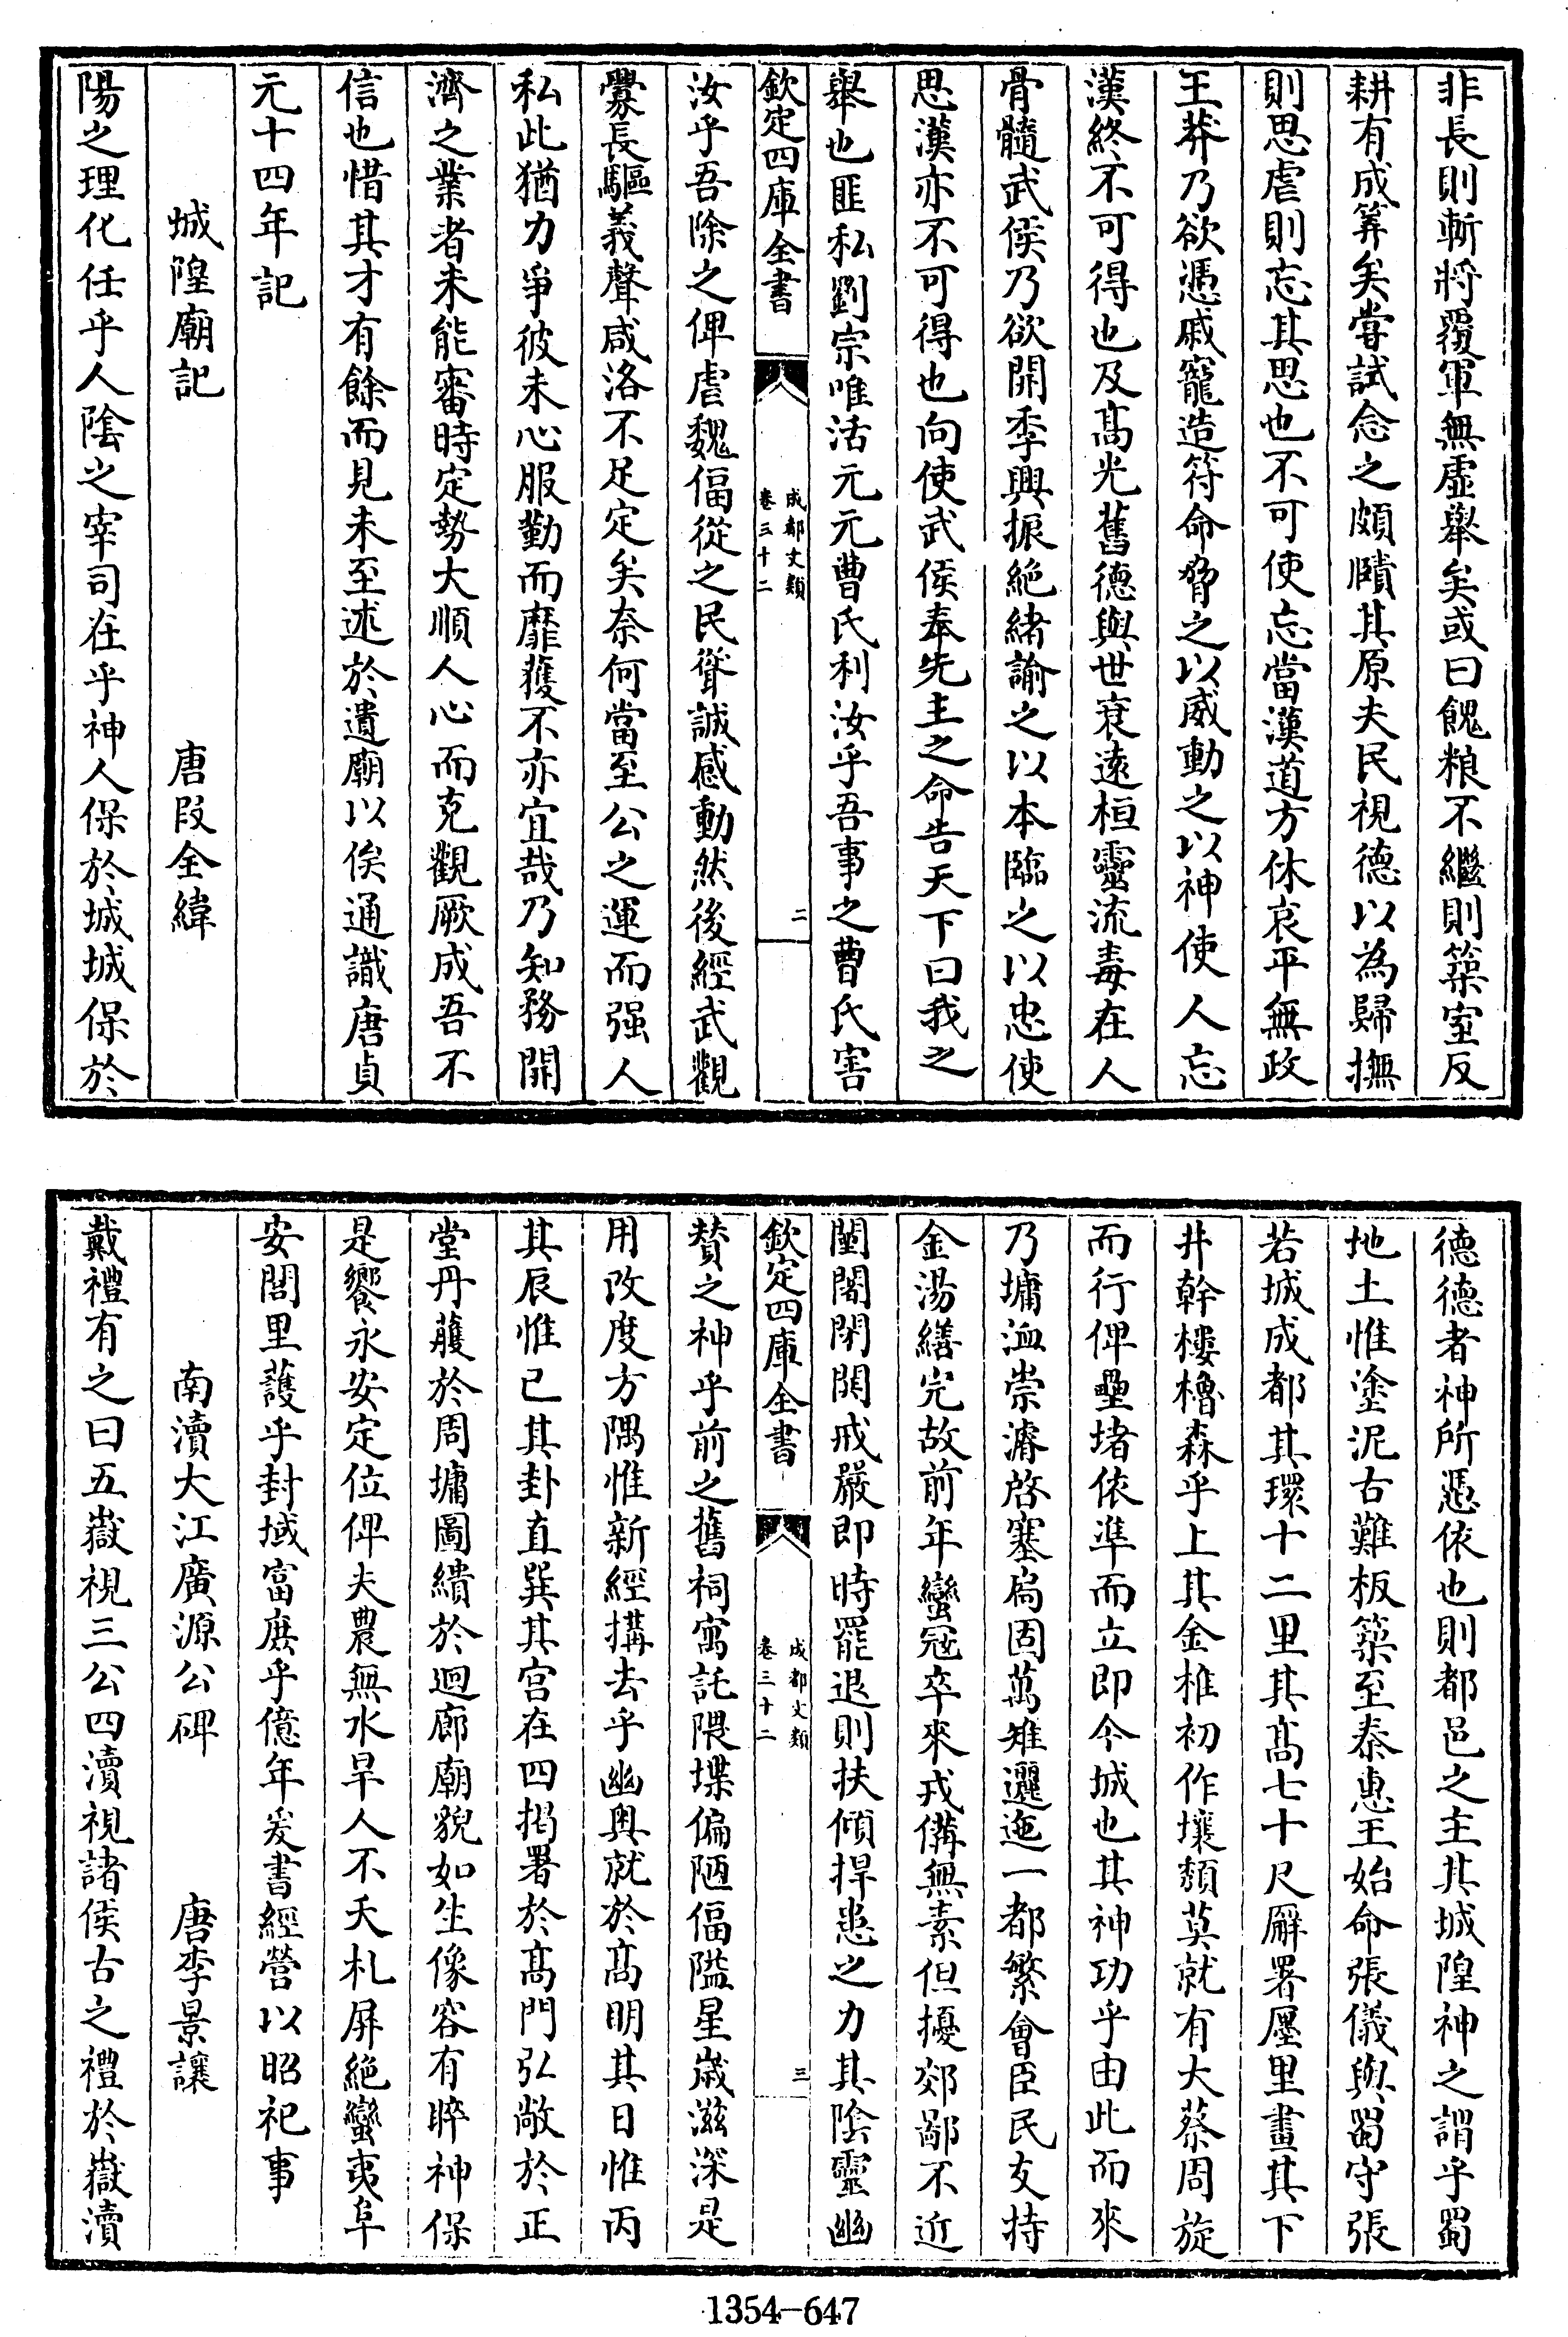 非長則斬將覆軍無虛舉矣或曰餽粮不繼則築室反
耕有成筭矣嘗試念之頗賾其原夫民視德以為歸撫
則思虐則忘其思也不可使忘當漢道方休哀平無政
王莽乃欲憑戚寵造符命脅之以威動之以神使人忘
漢終不可得也及髙光舊德與世衰逺桓靈流毒在人
骨髓武侯乃欲開季興振絶緒諭之以本臨之以忠使
思漢亦不可得也向使武侯奉先主之命告天下曰我之
舉也匪私劉宗唯活元元曹氏利汝乎吾事之曹氏害
欽定四庫全書
成都文類
卷三十二
二
汝乎吾除之俾虐魏偪從之民聳誠感動然後經武觀
釁長驅義聲咸洛不足定矣奈何當至公之運而强人
私此猶力爭彼未心服勤而靡獲不亦宜哉乃知務開
濟之業者未能審時定勢大順人心而克觀厥成吾不
信也惜其才有餘而見未至述於遺廟以俟通識唐貞
元十四年記
城隍廟記
唐段全緯
陽之理化任乎人陰之宰司在乎神人保於城城保於
德德者神所憑依也則都邑之主其城隍神之謂乎蜀
地土惟塗泥古難板築至秦惠王始命張儀與蜀守張
若城成都其環十二里其髙七十尺廨署廛里畫其下
井幹樓櫓森乎上其金椎初作壤頽莫就有大蔡周旋
而行俾壘堵依凖而立即今城也其神功乎由此而來
乃墉洫崇濬啓塞扃固萬雉邐迤一都繁會臣民攴持
金湯繕完故前年蠻冦卒來戎備無素但擾郊鄙不近
闉闍閉關戒嚴即時罷退則扶傾捍患之力其陰靈幽
欽定四庫全書
成都文類
卷三十二
三
賛之神乎前之舊祠寓託隈堞偏陋偪隘星歲滋深是
用改度方隅惟新經搆去乎幽奥就於髙明其日惟丙
其辰惟巳其卦直巽其宮在四揭署於髙門弘敞於正
堂丹雘於周墉圖繢於迴廊廟貌如生像容有睟神保
是饗永安定位俾夫農無水旱人不夭札屏絶蠻夷阜
安閭里䕶乎封域富庶乎億年爰書經營以昭祀事
南瀆大江廣源公碑
唐李景讓
戴禮有之曰五嶽視三公四瀆視諸侯古之禮於嶽瀆
1354-647